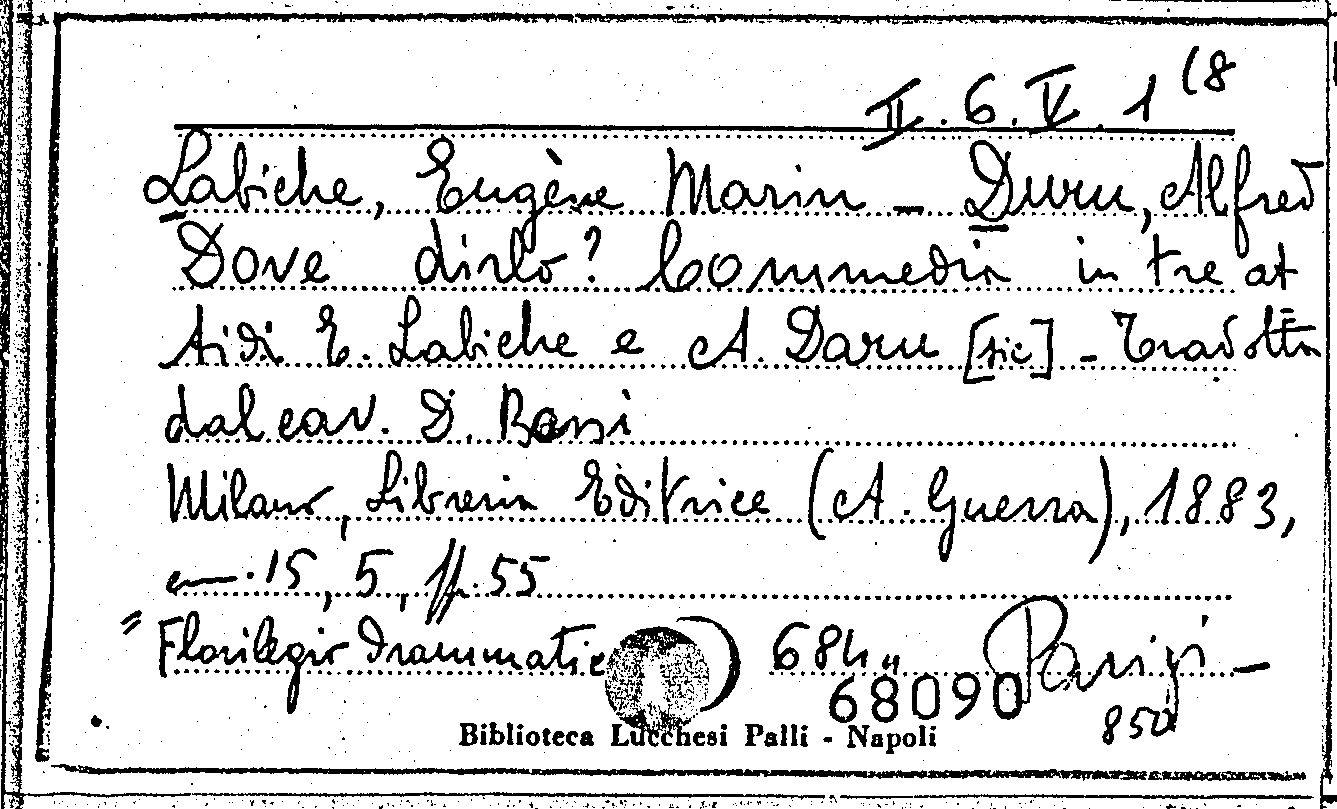 II. 6. V. 1 (8
Labiche, Eugène Marin - Duru, Alfred
Dove dirlo? Commedia in tre at
ti di E. Labiche e A. Daru [sic] - Tradotta
dal cav. D. Bassi
Milano, Libreria Editrice (A. Guerra), 1883,
cm. 15, 5, pp. 55
"Florilegio drammatic 684"
68090
Parigi -
850
Biblioteca Lucchesi Palli - Napoli